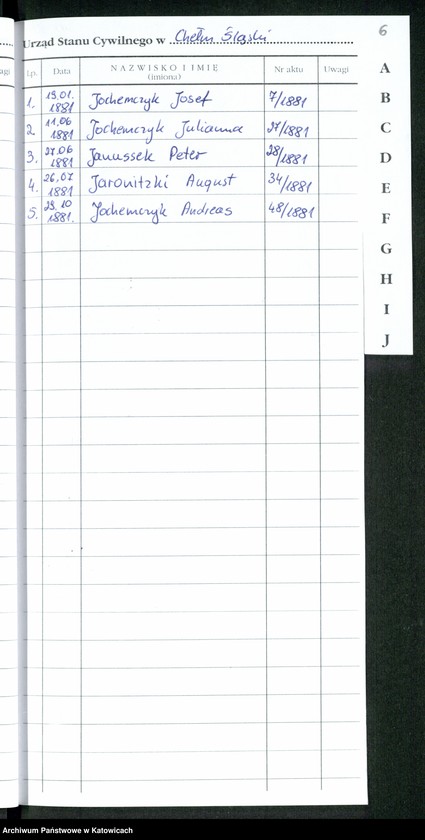 6
Urząd Stanu Cywilnego w Chełm Śląski
Lp. Data NAZWISKO I IMIĘ (imiona) Nr aktu Uwagi
1. 19.01. 1881 Jochemczyk Josef 7/1881
2. 11.06 1881 Jochemczyk Julianna 27/1881
3. 27.06 1881 Janussek Peter 28/1881
4. 26.07 1881 Jaronitzki August 34/1881
5. 29.10 1881. Jochemczyk Andreas 48/1881
A
B
C
D
E
F
G
H
I
J
Archiwum Państwowe w Katowicach